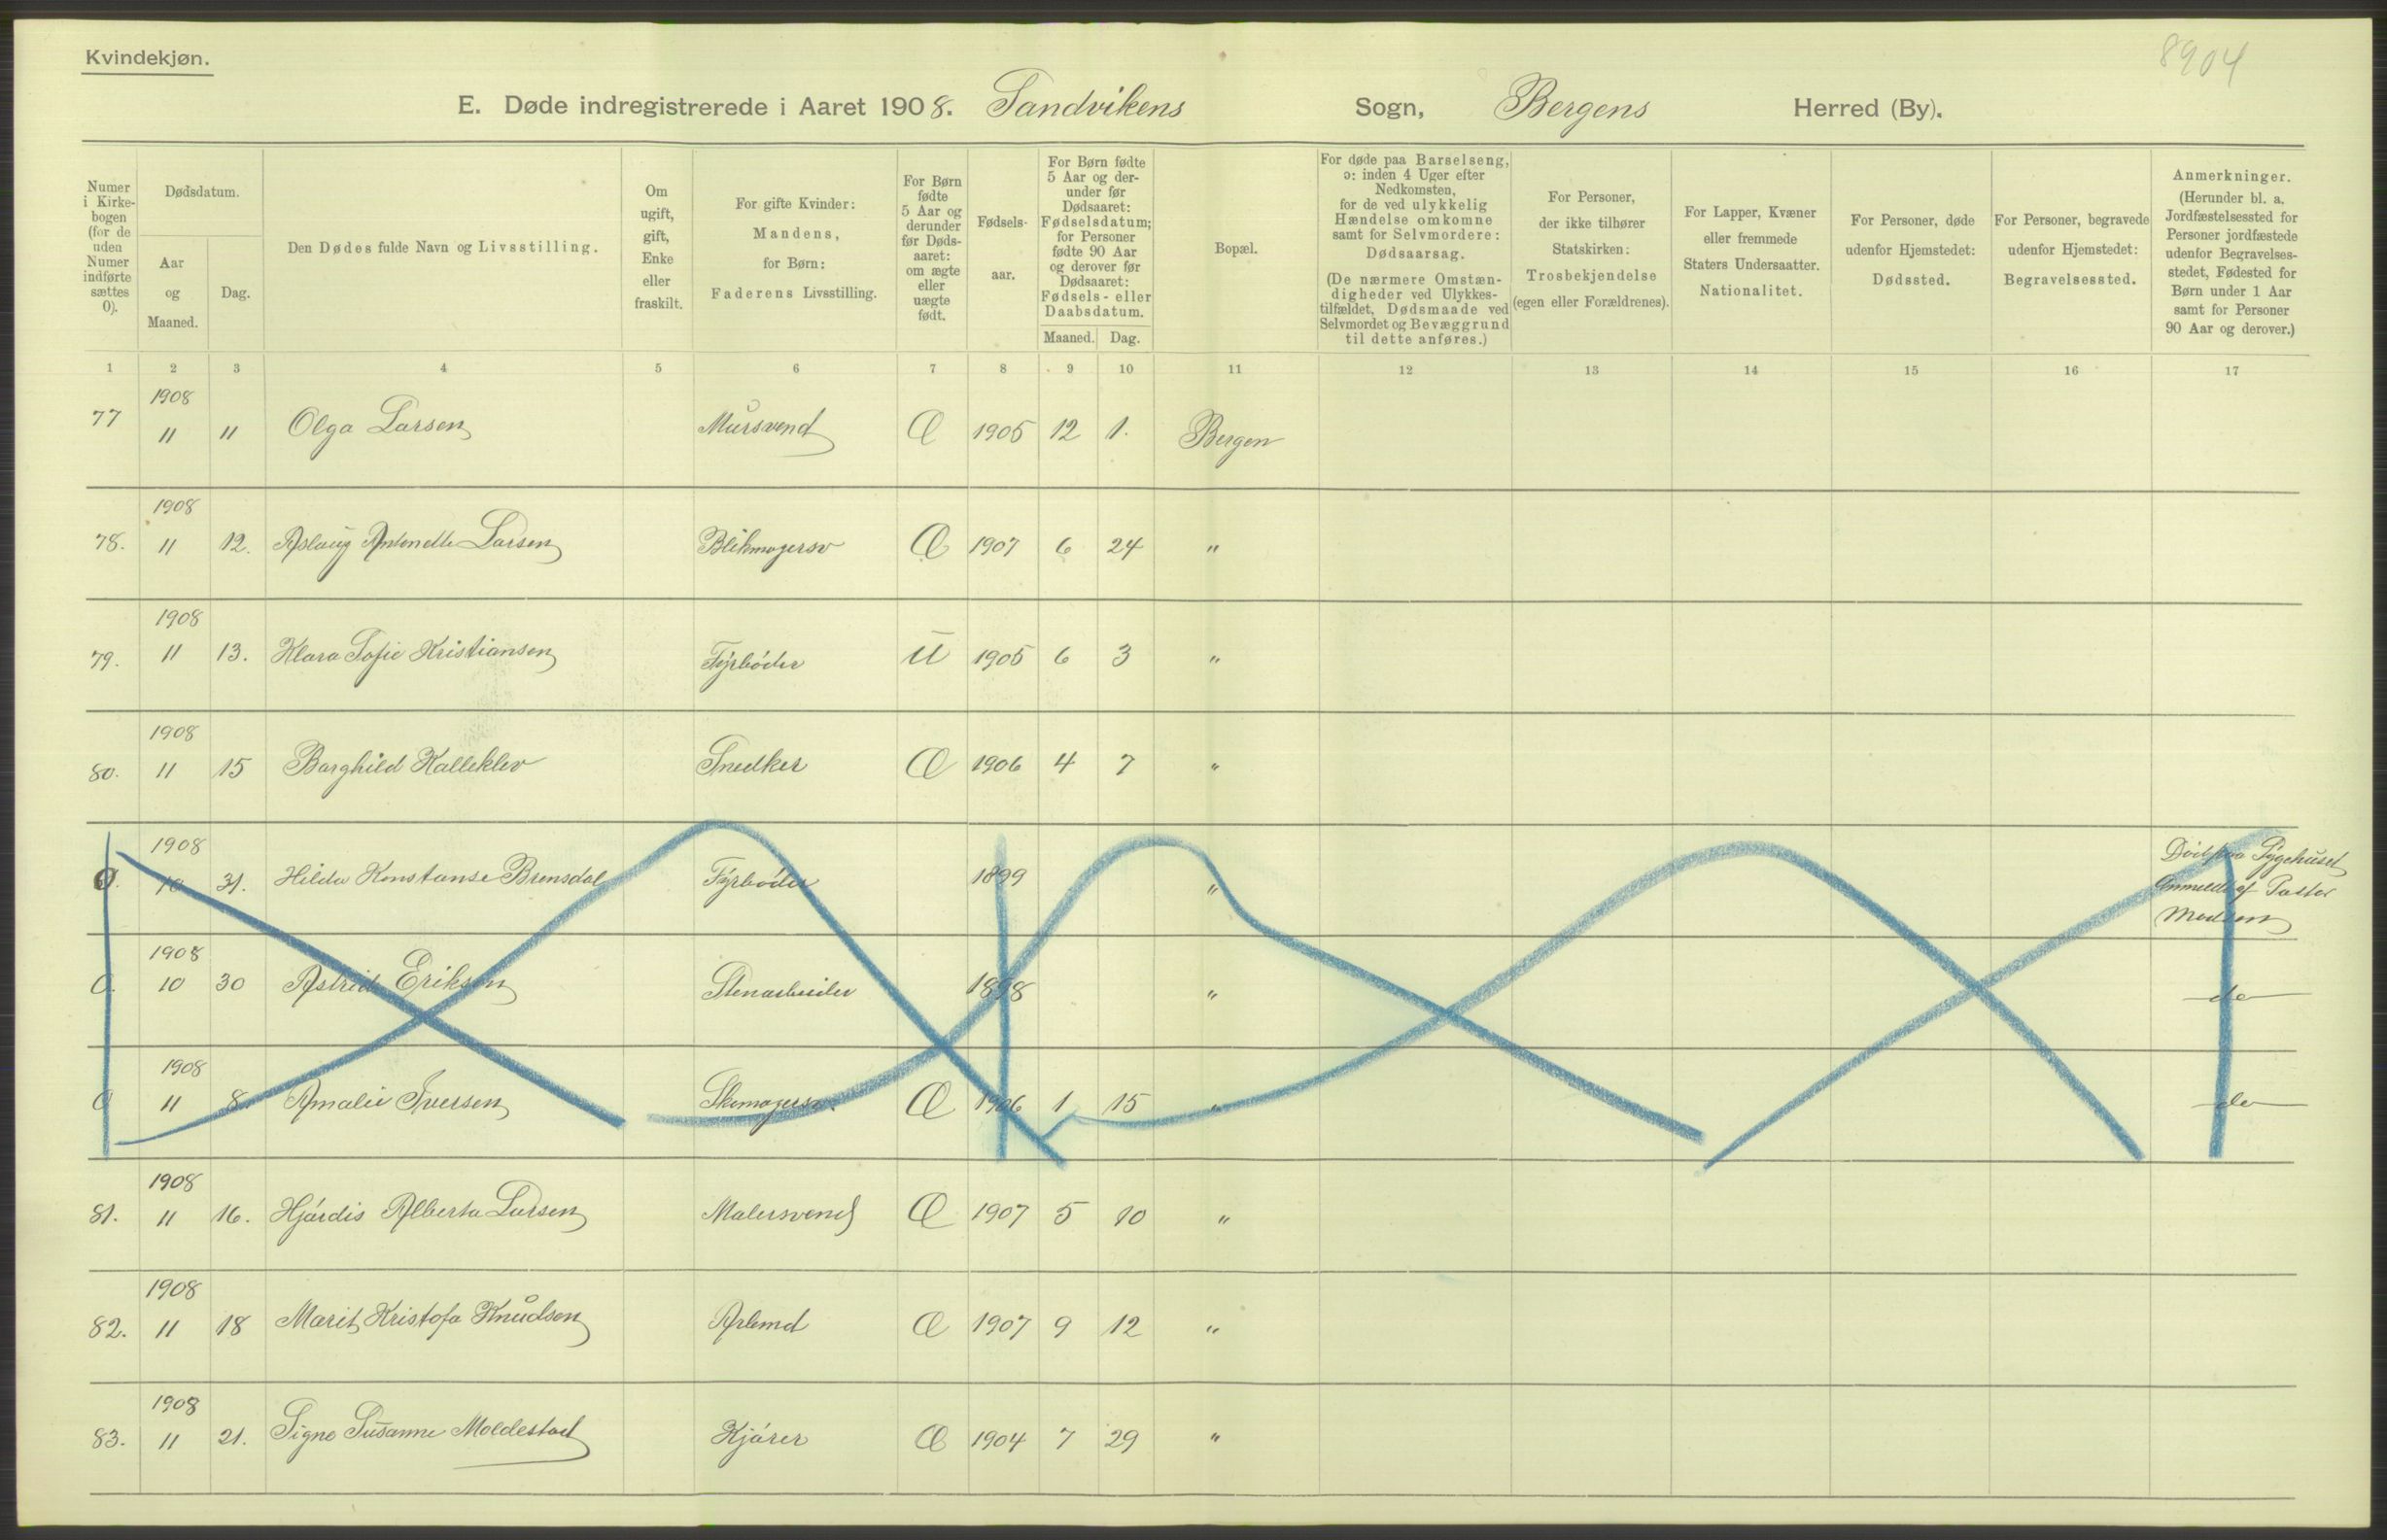 Kvindekjøn.
8904
E. Døde indregistrerede i Aaret 1908. Sandvikens Sogn, Bergens Herred (By).
Numer i Kirkebogen (for de uden Numer indførte sættes 0).
Dødsdatum.
Aar og Maaned.
Dag.
Den Dødes fulde Navn og Livsstilling.
Om ugift, gift, Enke eller fraskilt.
For gifte Kvinder: Mandens, for Børn: Faderens Livsstilling.
For Børn fødte 5 Aar og derunder før Dødsaaret: om ægte eller uægte født.
Fødselsaar.
For Børn fødte 5 Aar og derunder før Dødsaaret: Fødselsdatum; for Personer fødte 90 Aar og derover før Dødsaaret: Fødsels- eller Daabsdatum.
Maaned. Dag.
Bopæl.
For døde paa Barselseng, ɔ: inden 4 Uger efter Nedkomsten, for de ved ulykkelig Hændelse omkomne samt for Selvmordere: Dødsaarsag.
(De nærmere Omstændigheder ved Ulykkestilfældet, Dødsmaade ved Selvmordet og Bevæggrund til dette anføres.)
For Personer, der ikke tilhører Statskirken: Trosbekjendelse (egen eller Forældrenes).
For Lapper, Kvæner eller fremmede Staters Undersaatter. Nationalitet.
For Personer, døde udenfor Hjemstedet: Dødssted.
For Personer, begravede udenfor Hjemstedet: Begravelsessted.
Anmerkninger.
(Herunder bl. a. Jordfæstelsessted for Personer jordfæstede udenfor Begravelsesstedet, Fødested for Børn under 1 Aar samt for Personer 90 Aar og derover.)
1 2 3 4 5 6 7 8 9 10 11 12 13 14 15 16 17
1908
77 11 11 Olga Larsen Mursvend Æ 1905 12 1. Bergen
1908
78. 11 12. Aslaug Antonette Larsen Blikmagersv Æ 1907 6 24 "
1908
79. 11 13. Klara Sofie Kristiansen Fyrbøder U 1905 6 3 "
1908
80. 11 15 Borghild Kalleklev Snedker Æ 1906 4 7 "
1908
0. 10 31. Hilda Konstanse Brensdal Fyrbøder 1899 " Død paa Sygehuset
Anmeldt af Pastor
Madsen
1908
0. 10 30 Astrid Eriksen Stenarbeider 1898 " do
1908
0 11 8. Amalie Iversen Skomagersv. Æ 1906 1 15 " do
1908
81. 11 16. Hjørdis Alberta Larsen Malersvend Æ 1907 5 10 "
1908
82. 11 18 Marit Kristofa Knudsen Arbmd Æ 1907 9 12 "
1908
83. 11 21. Signe Susanne Moldestad Kjører Æ 1904 7 29 "